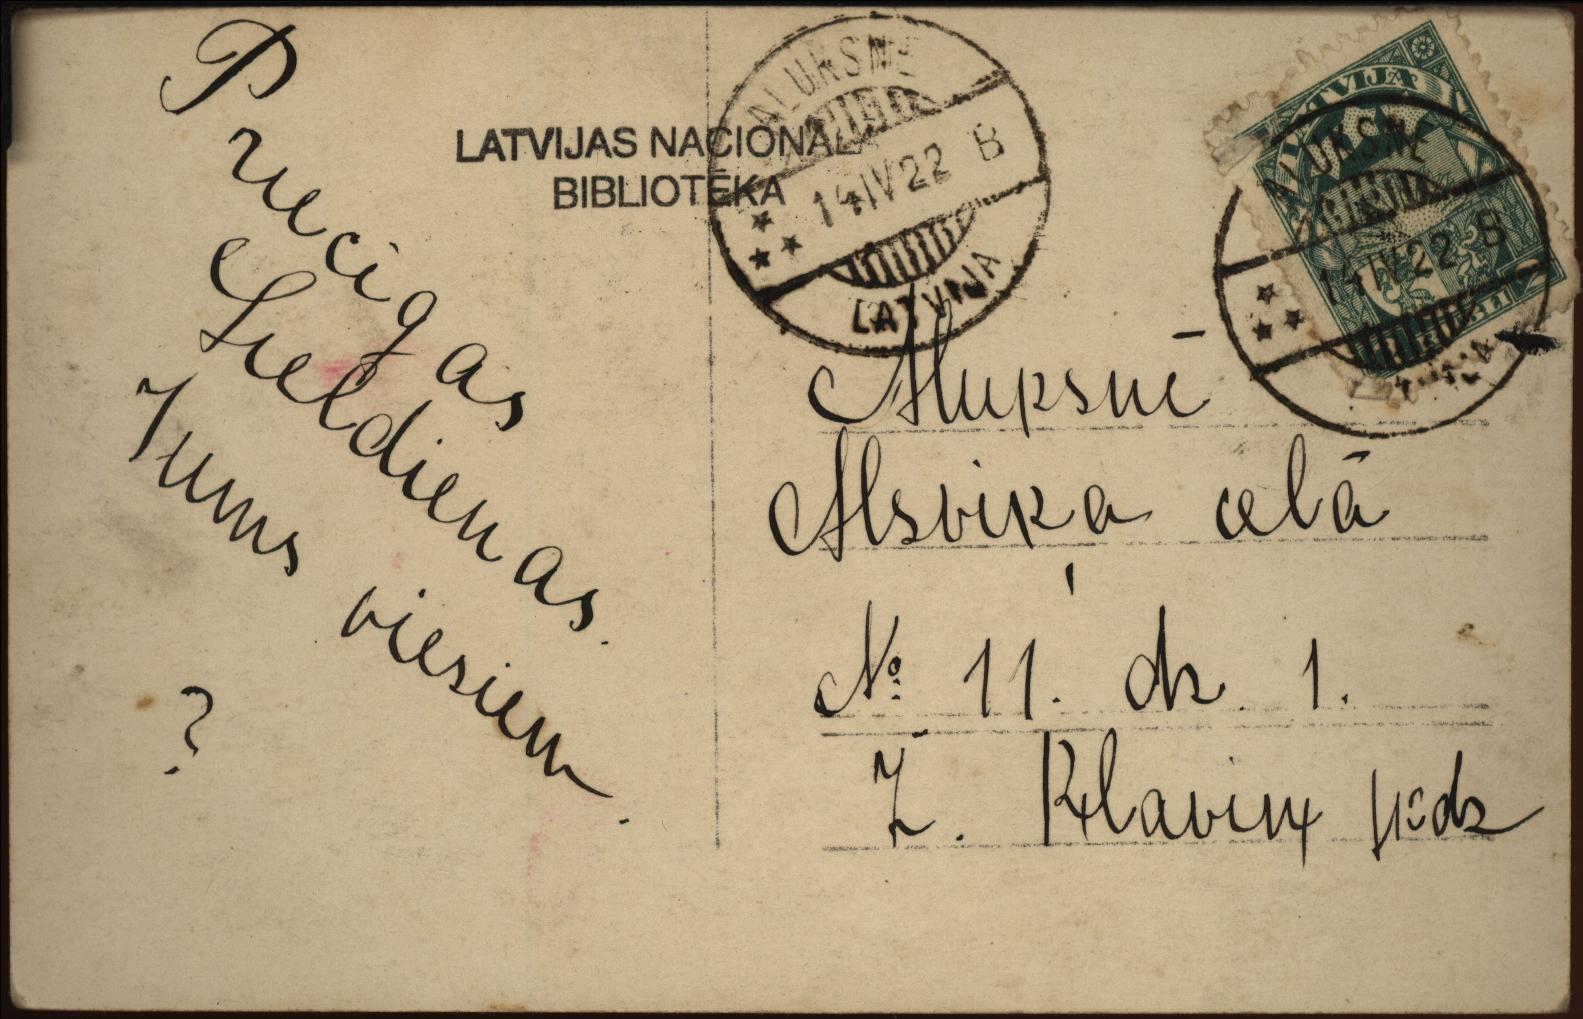 Precigas
Lieldienas.
Jums viesiem.
?
LATVIJAS NACIONĀLĀ
BIBLIOTĒKA
ALUKSNE
14 IV 22 B
LATVIJA
LATVIJA
ALUKSNE
14 IV 22 B
LATVIJA
Aluksnē
Alsvika celā
№ 11. dz. 1.
Z. Klavin kdz